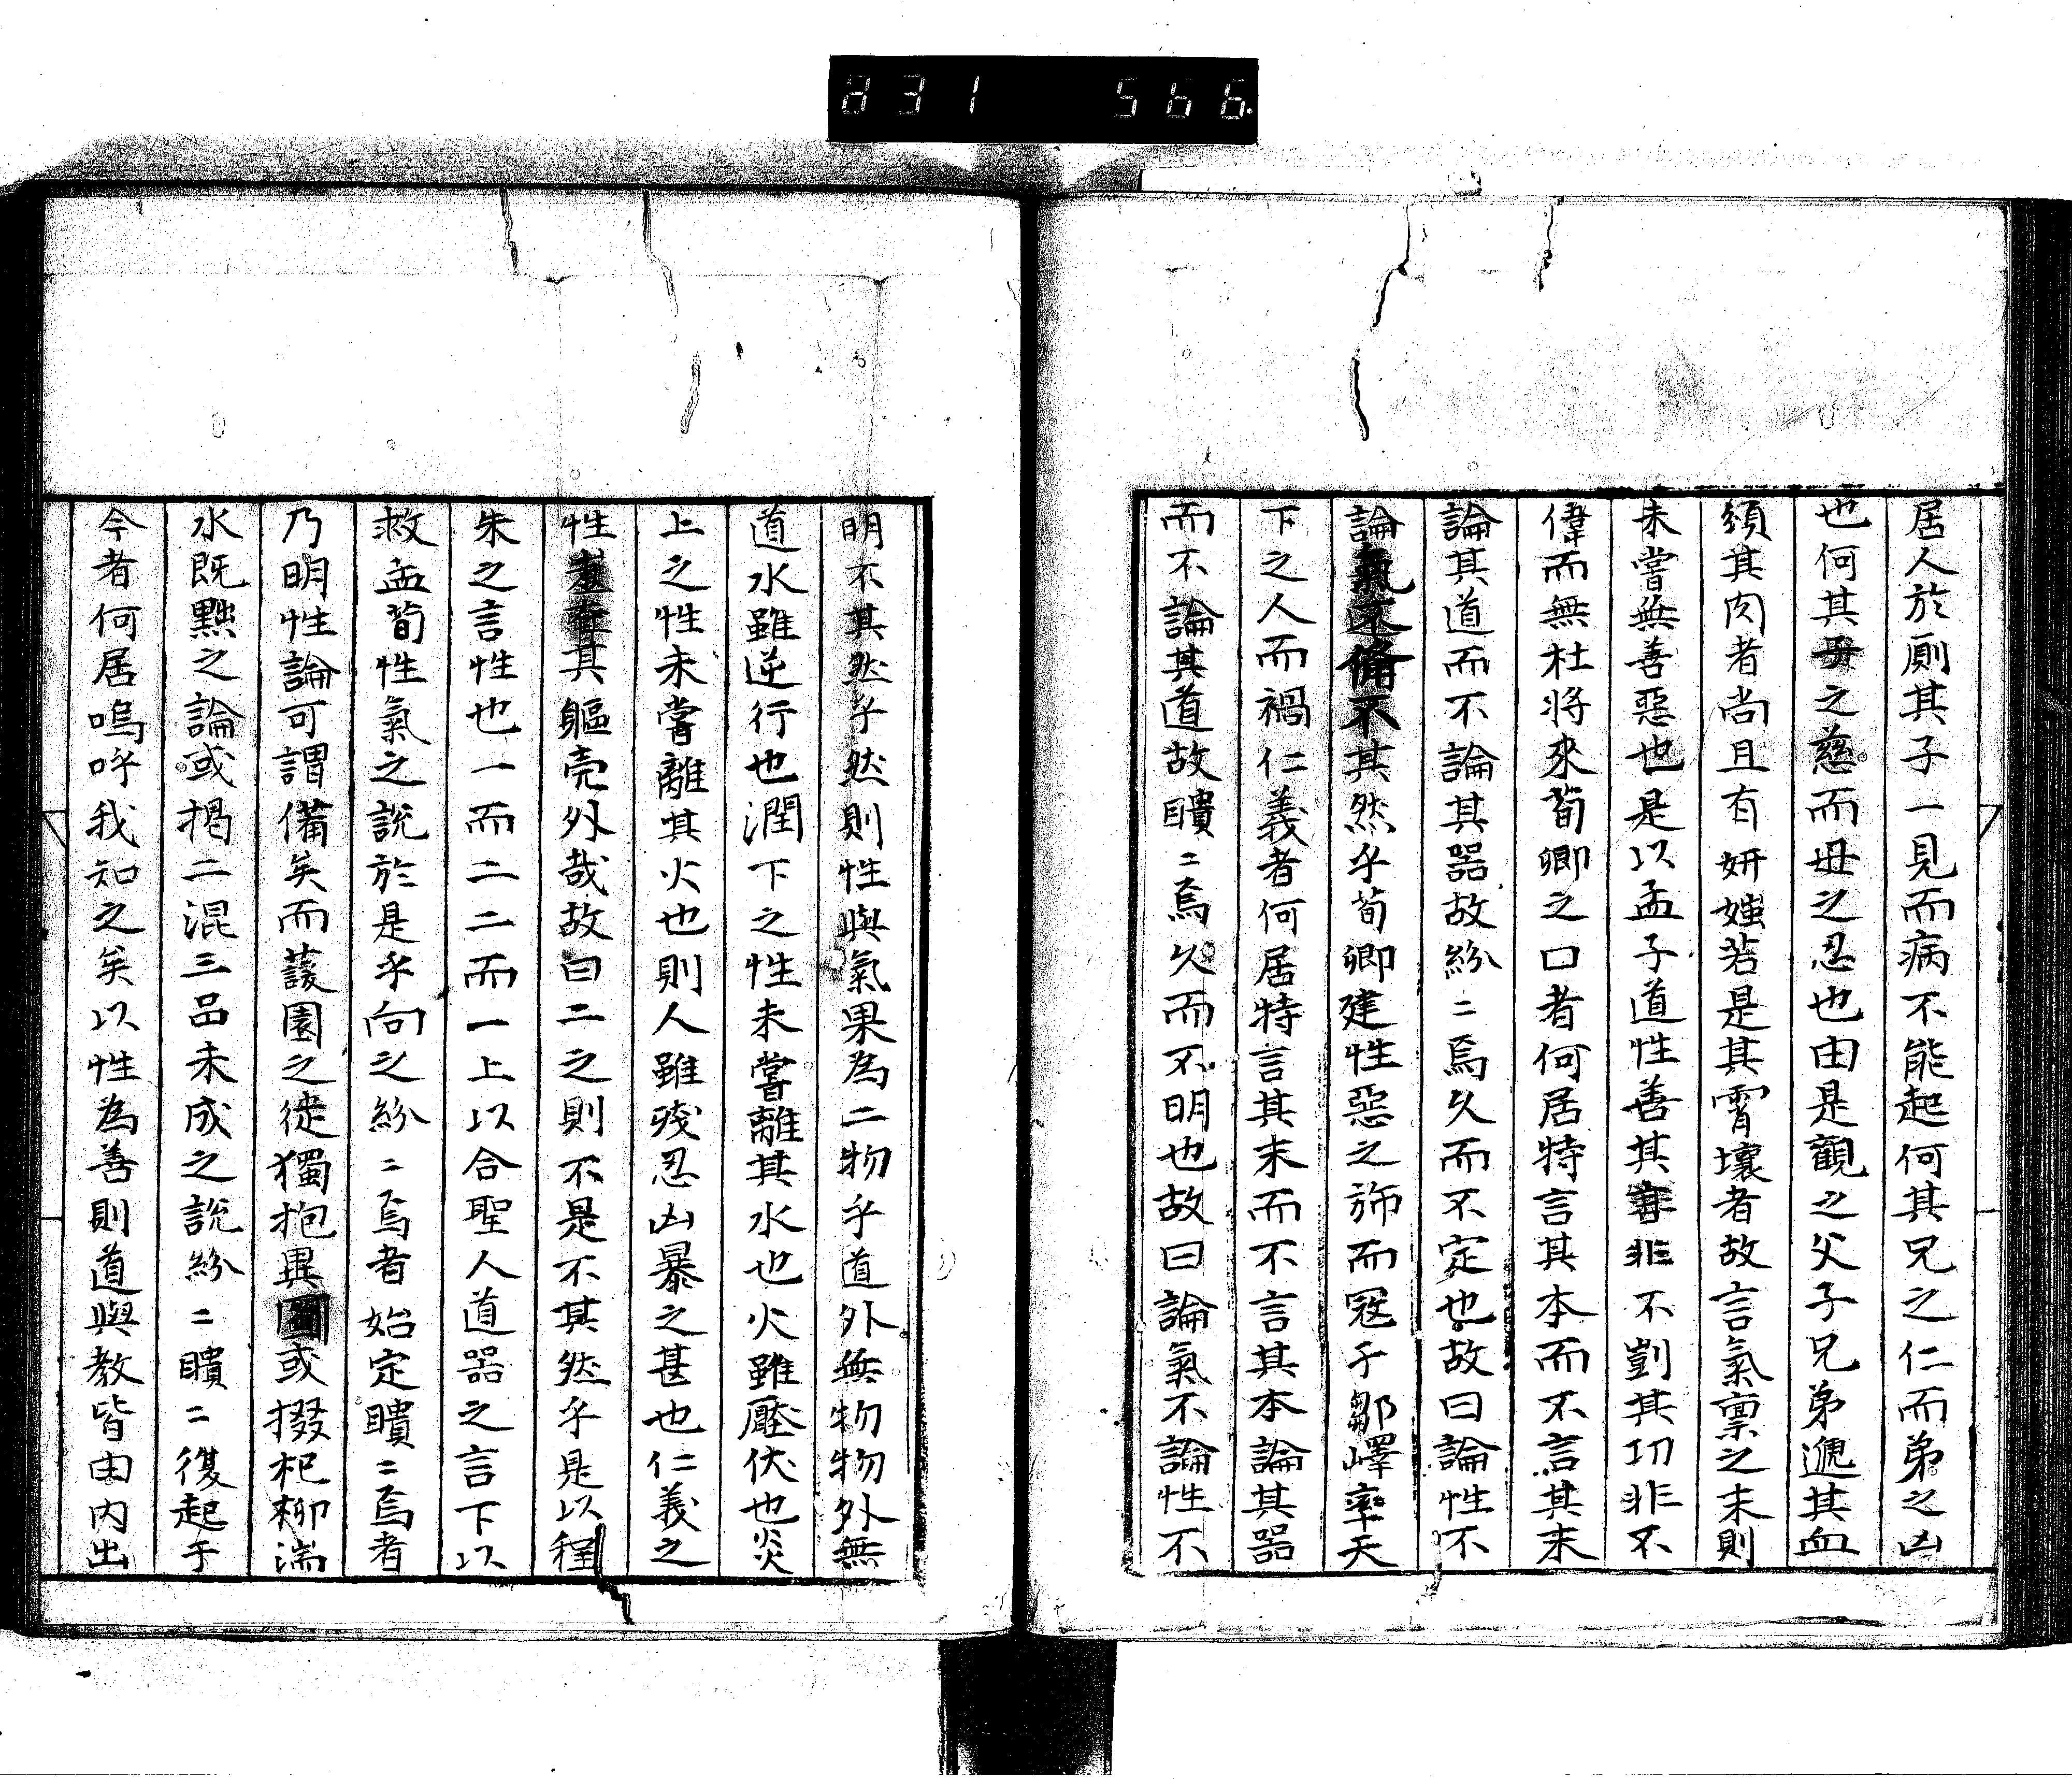 居人於厠其子一見而病不能起何其兄之仁而弟之凶
也何其母之慈而母之忍也由是觀之父子兄弟遞其血
類其肉者尚且有妍媸若是其霄壤者故言氣稟之末則
未嘗無善惡也是以孟子道性善其書非不剴其切非不
偉而無杜將來荀卿之口者何居特言其本而不言其末
論其道而不論其器故紛〻焉久而不定也故曰論性不
論氣不備不其然乎荀卿建性惡之旆而寇于鄒嶧率天
下之人而禍仁義者何居特言其末而不言其本論其器
而不論其道故瞶〻焉久而不明也故曰論氣不論性不
明不其然乎然則性與氣果為二物乎道外無物物外無
道水雖逆行也潤下之性未嘗離其水也火雖壓伏也炎
上之性未嘗離其火也則人雖殘忍凶暴之甚也仁義之
性其軀壳外哉故曰二之則不是不其然乎是以程
朱之言性也一而二二而一上以合聖人道器之言下以
救孟荀性氣之說於是乎向之紛〻焉者始定瞶〻焉者
乃明性論可謂備矣而蘐園之徒獨抱異圖或掇杞柳湍
水既黜之論或揭二混三品未成之說紛〻瞶〻復起于
今者何居嗚呼我知之矣以性為善則道與教皆由內出
231 566